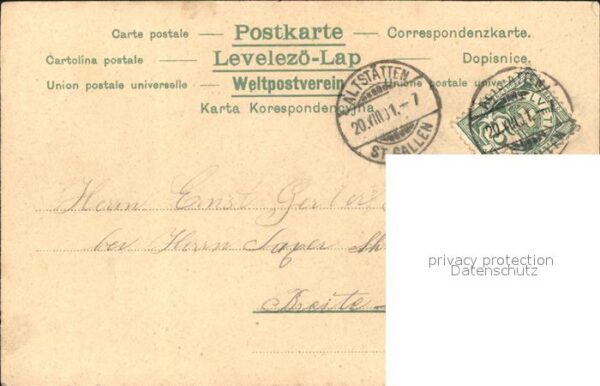 Carte postale — Postkarte — Correspondenzkarte.
Cartolina postale — Levelező-Lap — Dopisnice.
Union postale universelle — Weltpostverein — Unione postale univers
Karta Korespondencyjna.
ALTSTÄTTEN
20.VIII.01.-7
ST. GALLEN
HELVETIA
Herrn Ernst
bei Herrn
Breite
privacy protection
Datenschutz